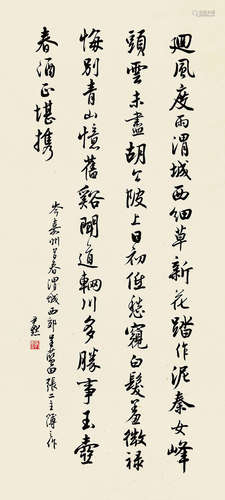 迴風度雨渭城西細草新花踏作泥秦女峰
頭雪未盡胡公陂上日初低愁窺白髮羞微禄
悔别青山憶舊谿聞道輞川多勝事玉壺
春酒正堪携
岑嘉州首春渭城西郊呈藍田張二主簿之作
尹默